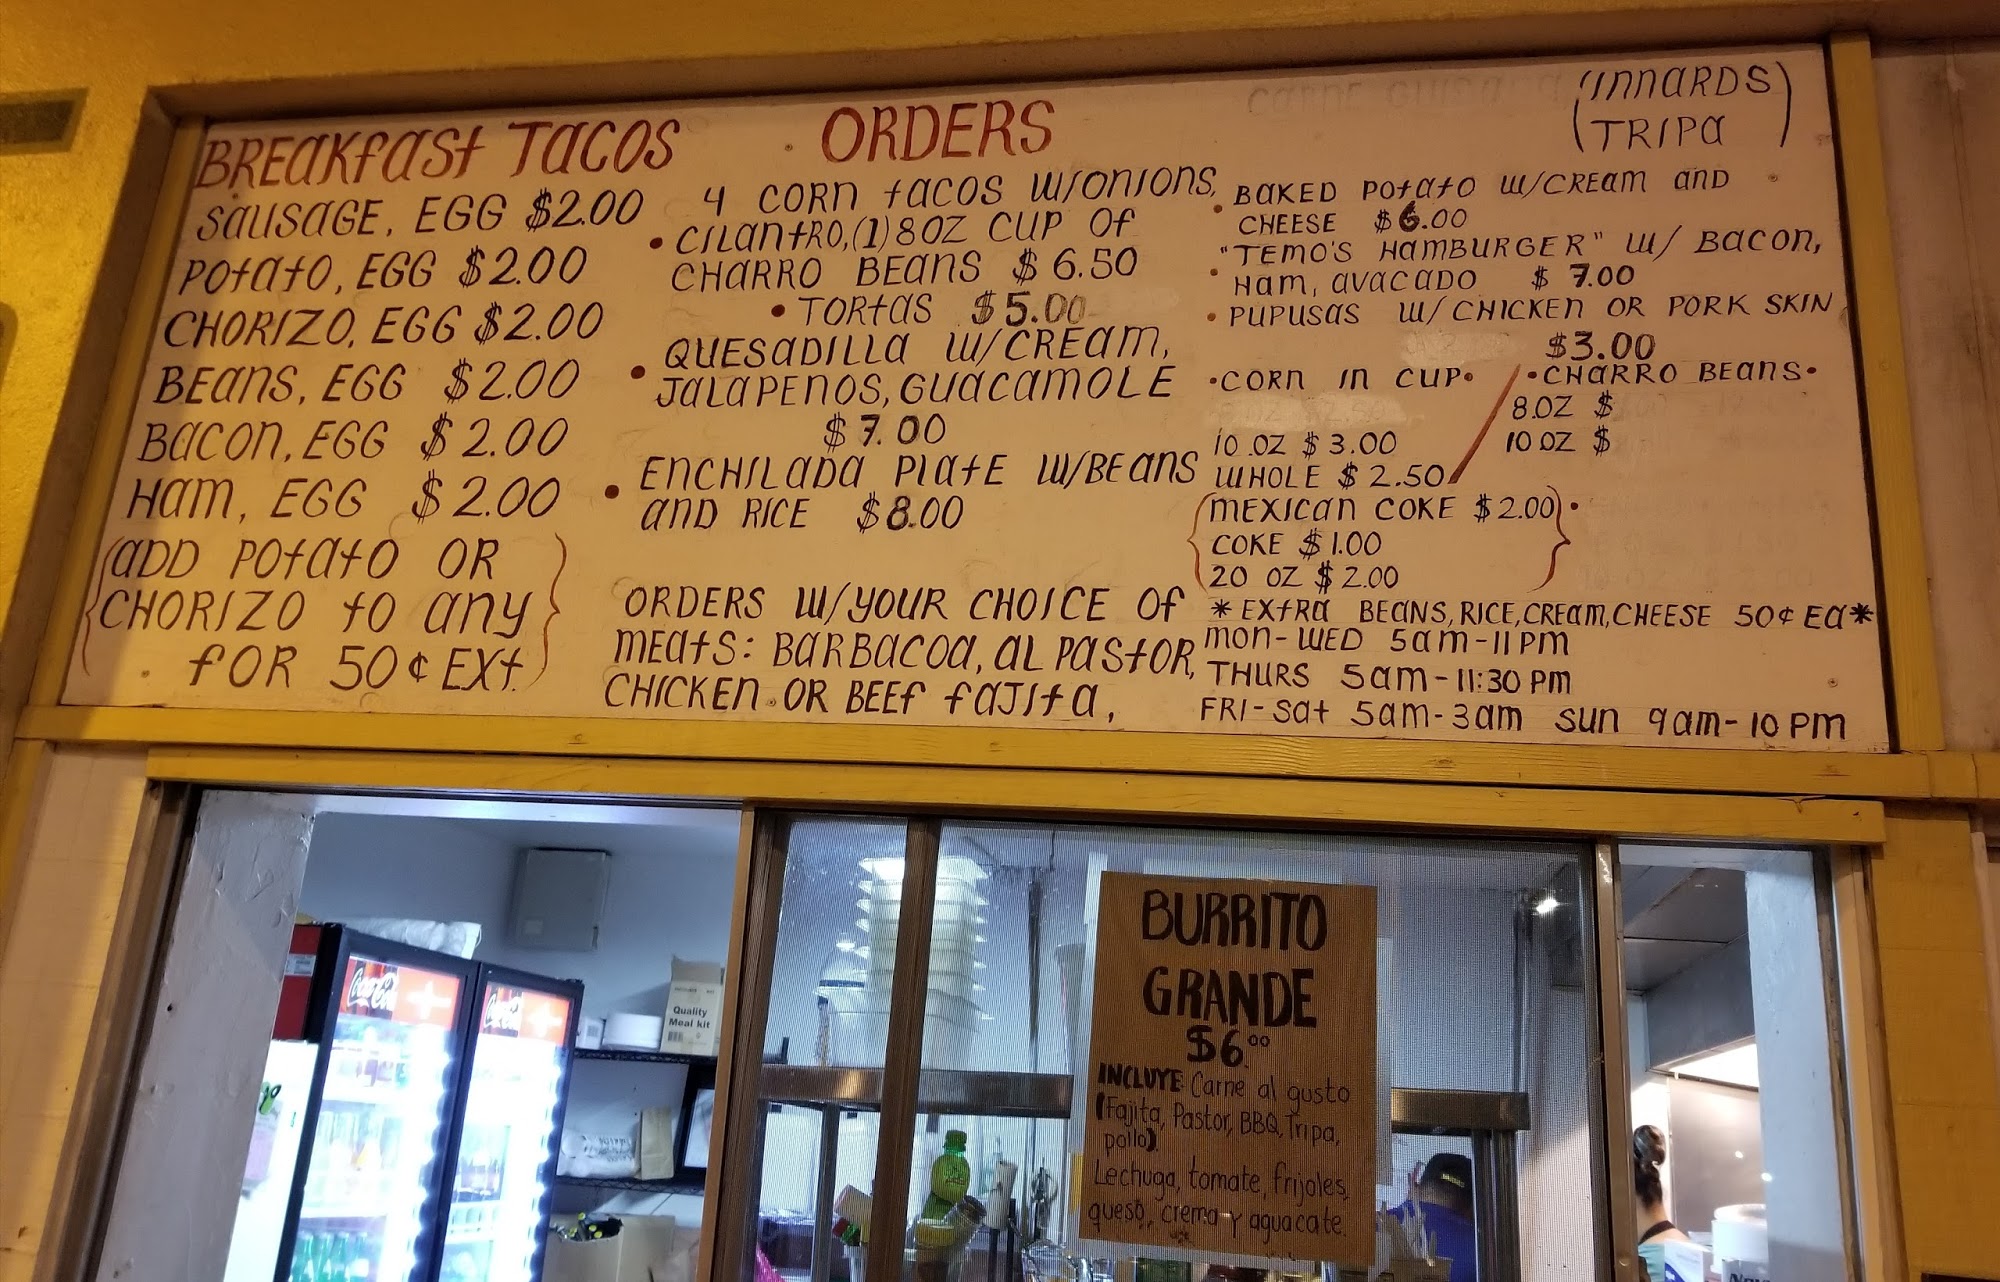 BREAKfast TACOS
SAUSAGE, EGG $2.00
POtatO, EGG $2.00
CHORIZO, EGG $2.00
BEANS, EGG $2.00
BACON, EGG $2.00
HAM, EGG $2.00
(ADD POtatO OR
CHORIZO tO any
fOR 50¢ EXt.)
ORDERS
4 CORN tACOS W/ONIONS,
• CILANtRO,(1) 8OZ CUP Of
CHARRO BEANS $6.50
• TORtAS $5.00
• QUESADILLA W/CREAM,
JALAPENOS, GUACAMOLE
$7.00
• ENCHILADA PLAtE W/BEANS
AND RICE $8.00
ORDERS W/YOUR CHOICE Of
MEAtS: BARBACOA, AL PAStOR,
CHICKEN OR BEEf fAJItA,
(INNARDS)
(TRIPA)
• BAKED POtAtO W/CREAM AND
CHEESE $6.00
• "TEMO'S HAMBURGER" W/ BACON,
HAM, AVACADO $7.00
• PUPUSAS W/ CHICKEN OR PORK SKIN
$3.00
•CORN IN CUP•
10.OZ $3.00
WHOLE $2.50
•CHARRO BEANS•
8.OZ $
10 OZ $
(MEXICAN COKE $2.00)•
COKE $1.00
20 OZ $2.00
*EXtRA BEANS,RICE,CREAM,CHEESE 50¢ EA*
MON-WED 5am-11PM
THURS 5am-11:30PM
FRI-SAt 5am-3am SUN 9am-10PM
Coca-Cola
Coca-Cola
Quality
Meal kit
BURRITO
GRANDE
$6.00
INCLUYE: Carne al gusto
(Fajita, Pastor, BBQ, Tripa,
pollo).
Lechuga, tomate, frijoles,
queso, crema y aguacate.